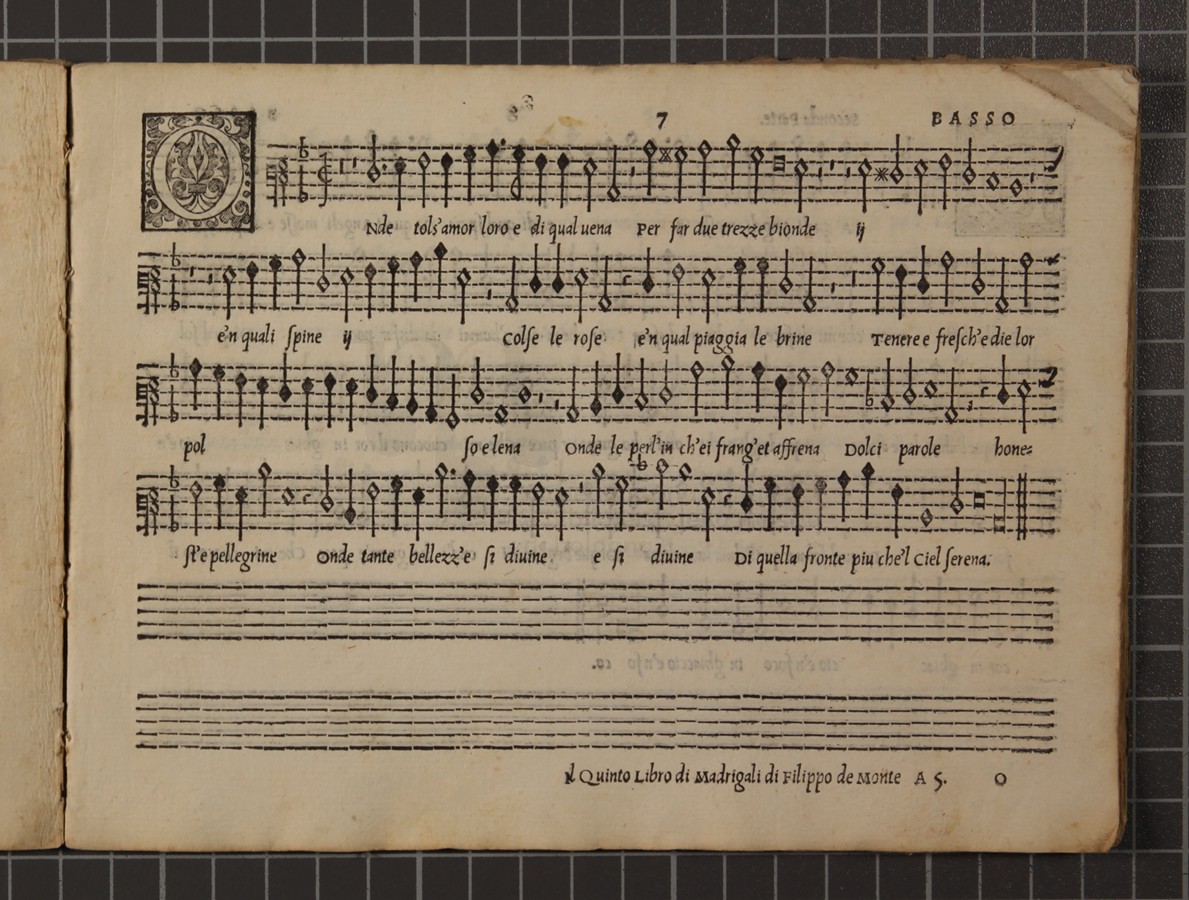 7 BASSO
O Nde tols'amor loro e di qual uena Per far due trezze bionde ij
e'n quali spine ij Colse le rose e'n qual piaggia le brine Tenere e fresch'e die lor
pol so e lena Onde le perl'in ch'ei frang'et affrena Dolci parole hone=
st'e pellegrine Onde tante bellezz'e si diuine e si diuine Di quella fronte piu che'l Ciel serena.
Il Quinto Libro di Madrigali di Filippo de Monte A 5. O